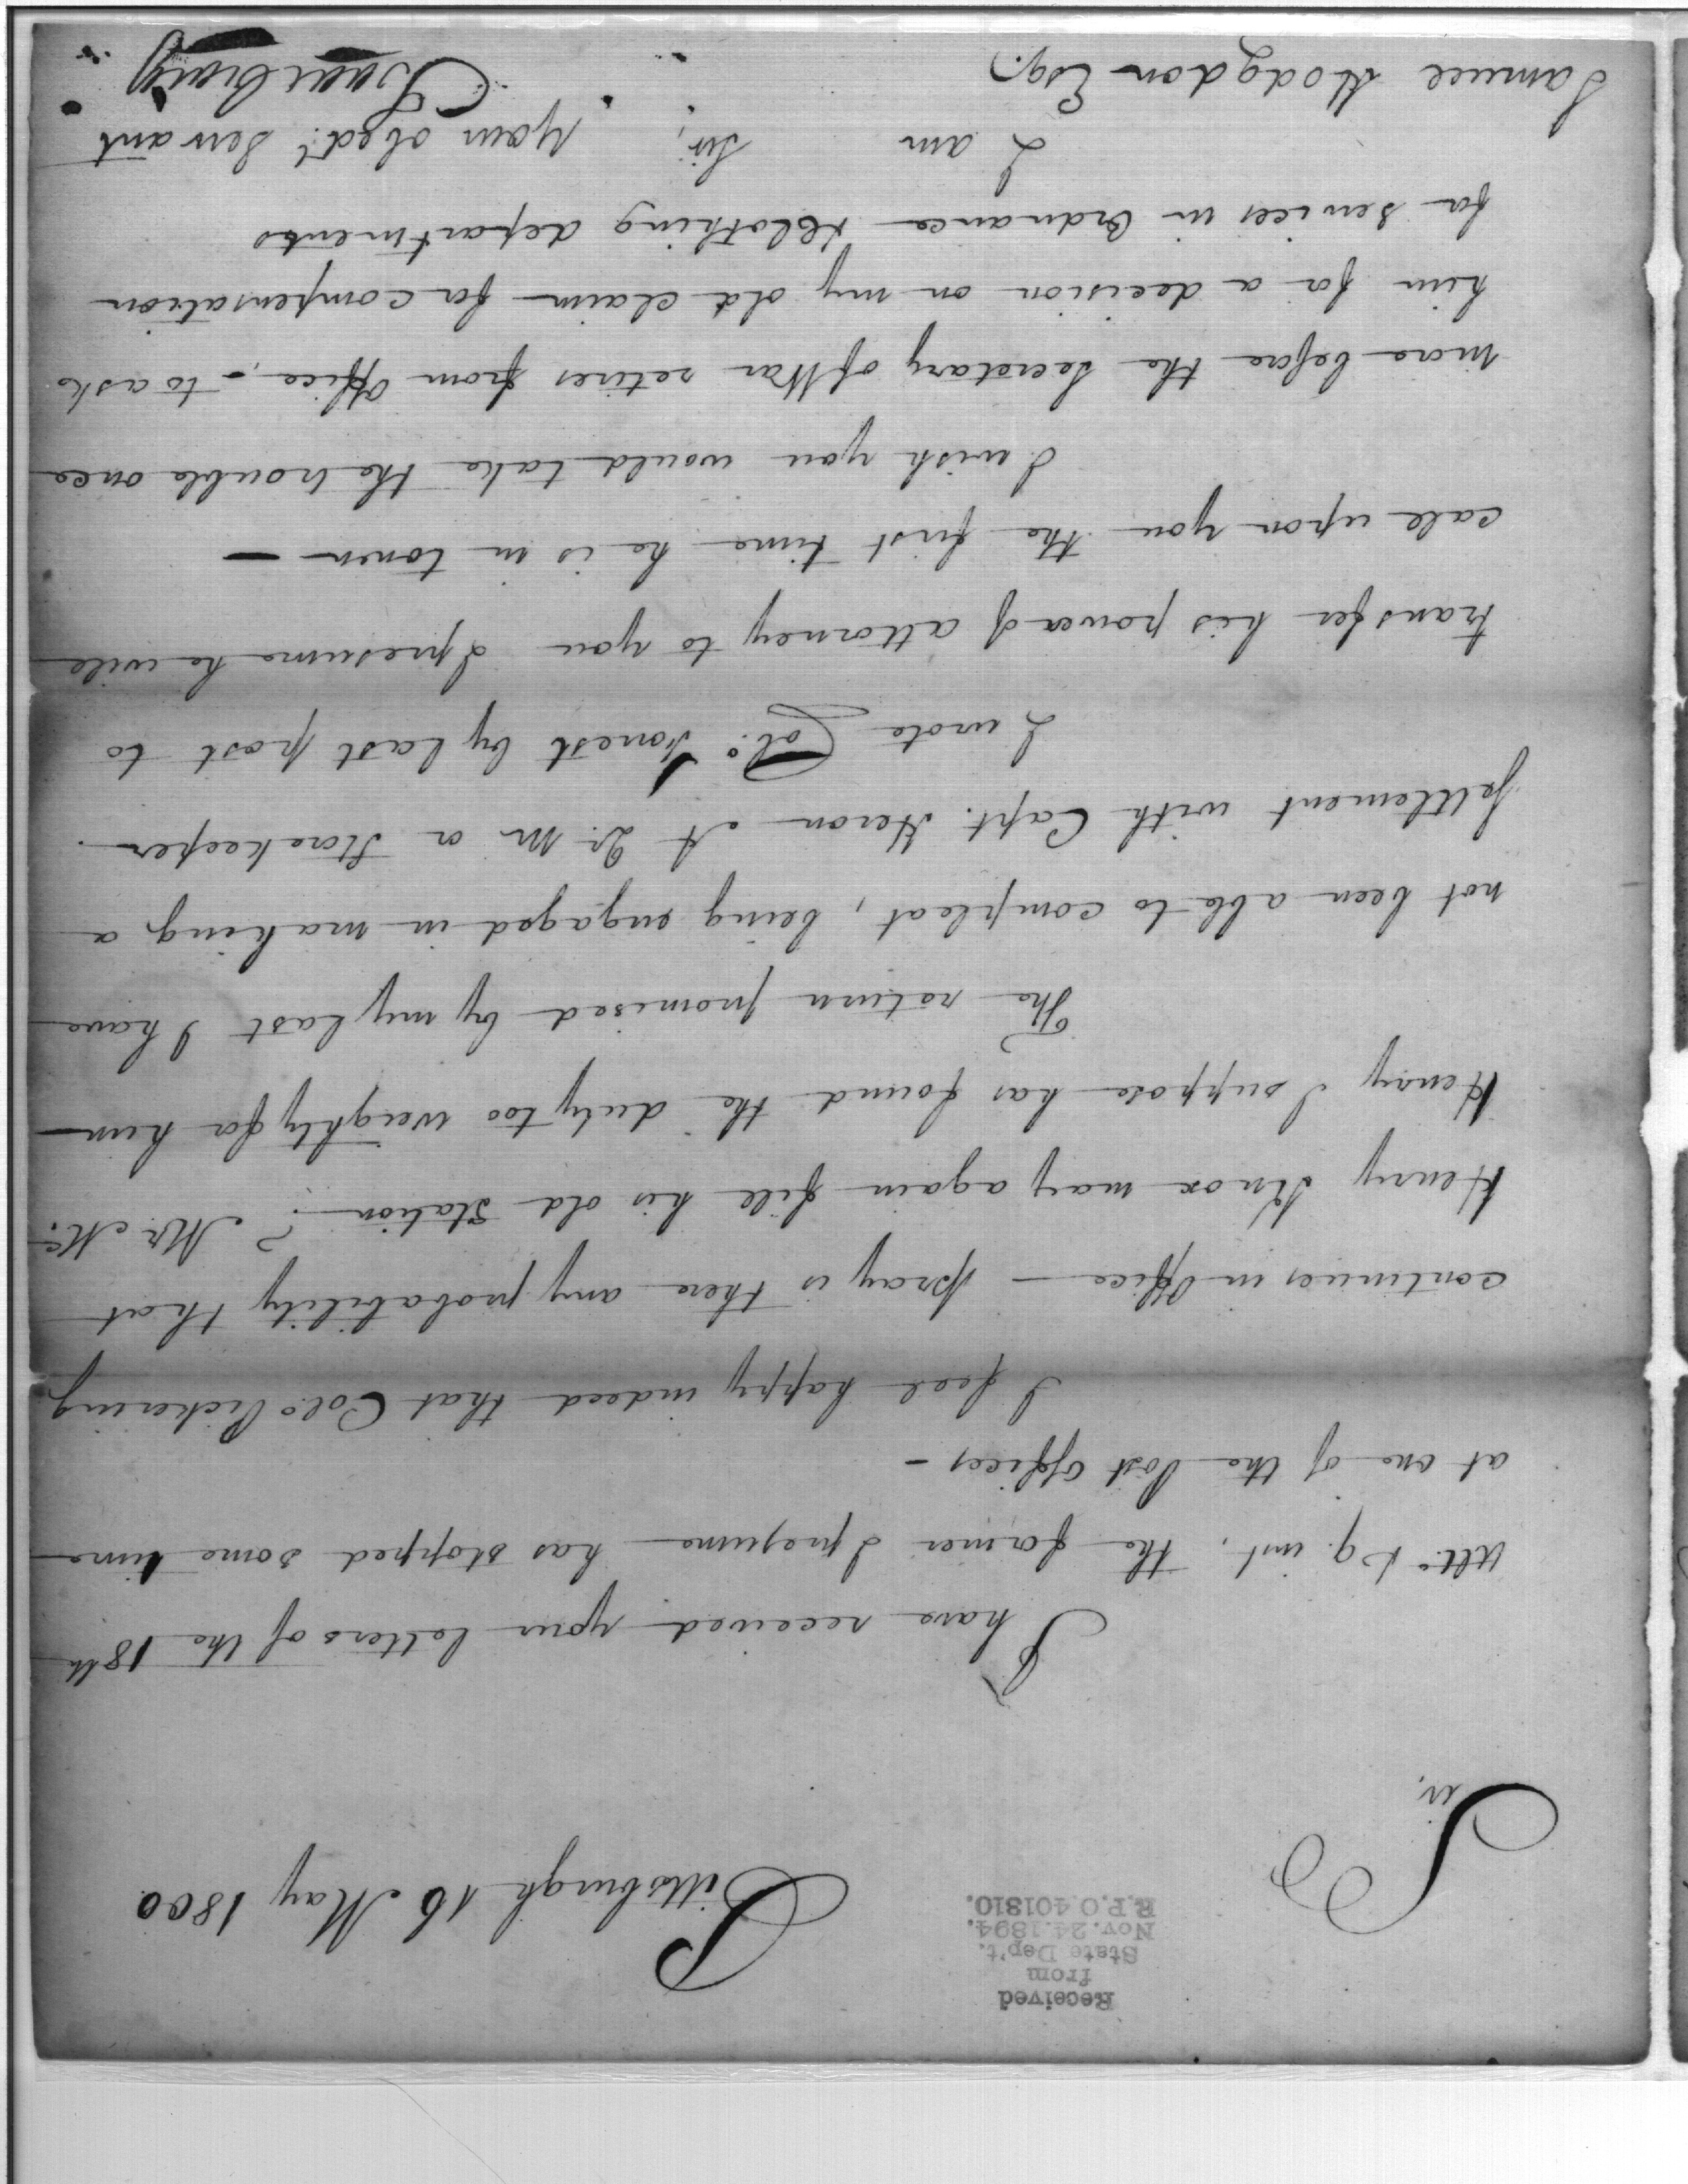 Received
from
State Dep't.
Nov. 24. 1894.
R.P.O. 401810.
Pittsburgh 16 May 1800
Sir,
I have received your letters of the 18th
Ulto. & 9 inst, the former I presume has stopped some time
at one of the Post Offices -
I feel happy indeed that Colo. Pickering
continues in Office - pray is there any probability that
Henry Knox may again fill his old Station? Mr. Mc.
Henry I suppose has found the duty too weighty for him -
The return promised by my last I have
not been able to compleat, being engaged in making a
settlement with Capt. Heron A Q. M or Storekeeper.
I wrote Colo. Forrest by last post to
transfer his power of attorney to you I presume he will
call upon you the first time he is in town -
I wish you would take the trouble once
more before the Secretary of War retires from Office, - to ask
him for a decision on my old claim for compensation
for services in Ordnance & Clothing departments
I am Sir, Your obedt. Servant
Isaac Craig
Samuel Hodgdon Esq.